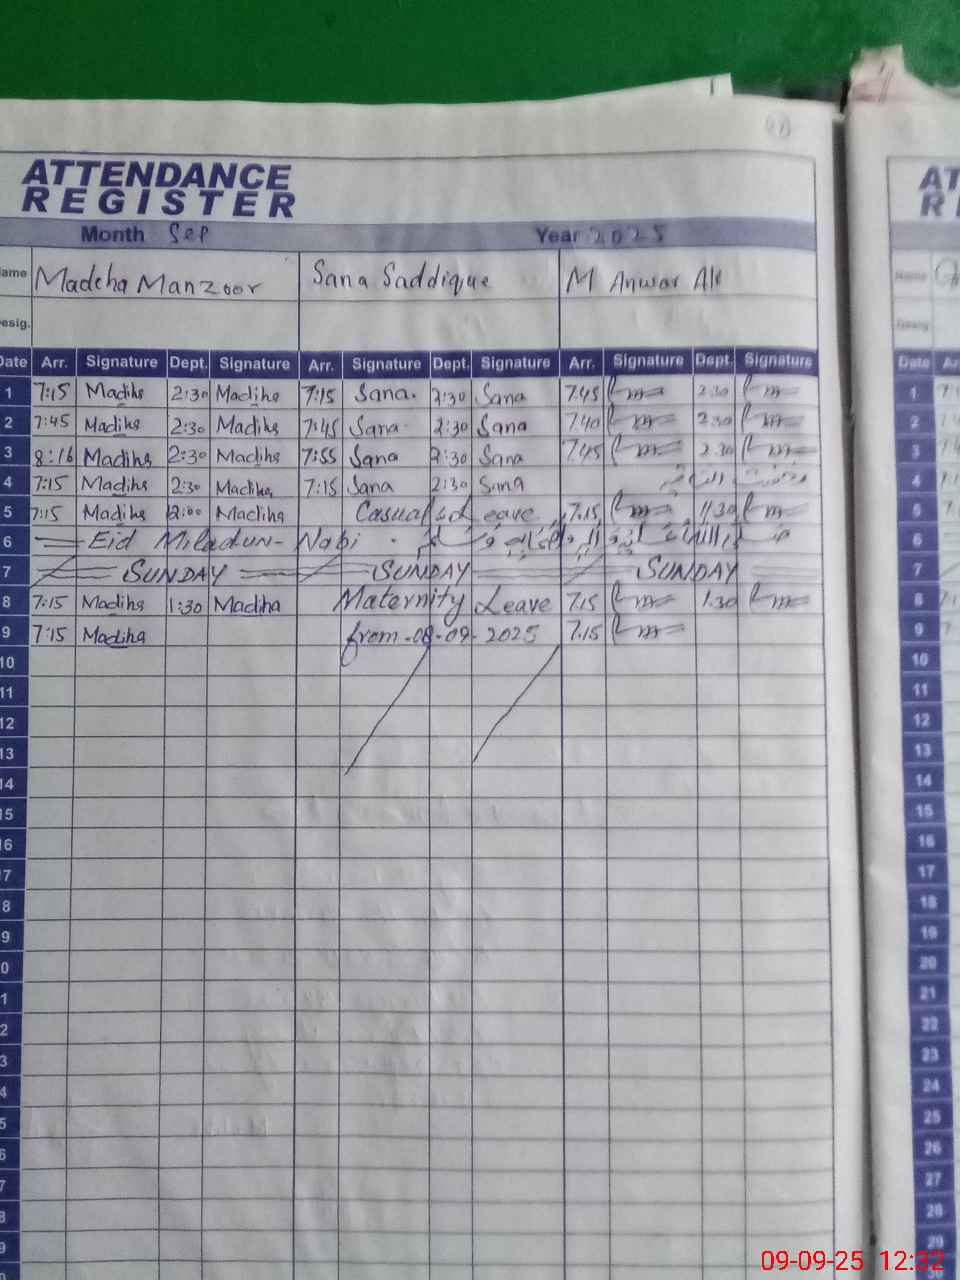 ATTENDANCE
REGISTER
Month Sep Year 2025
Name Madeha Manzoor Sana Saddique M Anwar Ali
Desig.
Date Arr. Signature Dept. Signature Arr. Signature Dept. Signature Arr. Signature Dept. Signature
1 7:15 Madiha 2:30 Madiha 7:15 Sana. 2:30 Sana 7.45 2.30
2 7:45 Madiha 2:30 Madiha 7:45 Sana 2:30 Sana 7.40 2.30
3 8:16 Madiha 2:30 Madiha 7:55 Sana 2:30 Sana 7.45 2.30
4 7:15 Madiha 2:30 Madiha 7:15 Sana 2:30 Sana
5 7:15 Madiha 12:00 Madiha Casual Leave 7.15 11.30
6 Eid Miladun-Nabi
7 SUNDAY SUNDAY SUNDAY
8 7:15 Madiha 1:30 Madiha Maternity Leave 7.15 1.30
9 7:15 Madiha from-08-09-2025 7.15
10
11
12
13
14
15
16
17
18
19
20
21
22
23
24
25
26
27
28
29
09-09-25 12:32